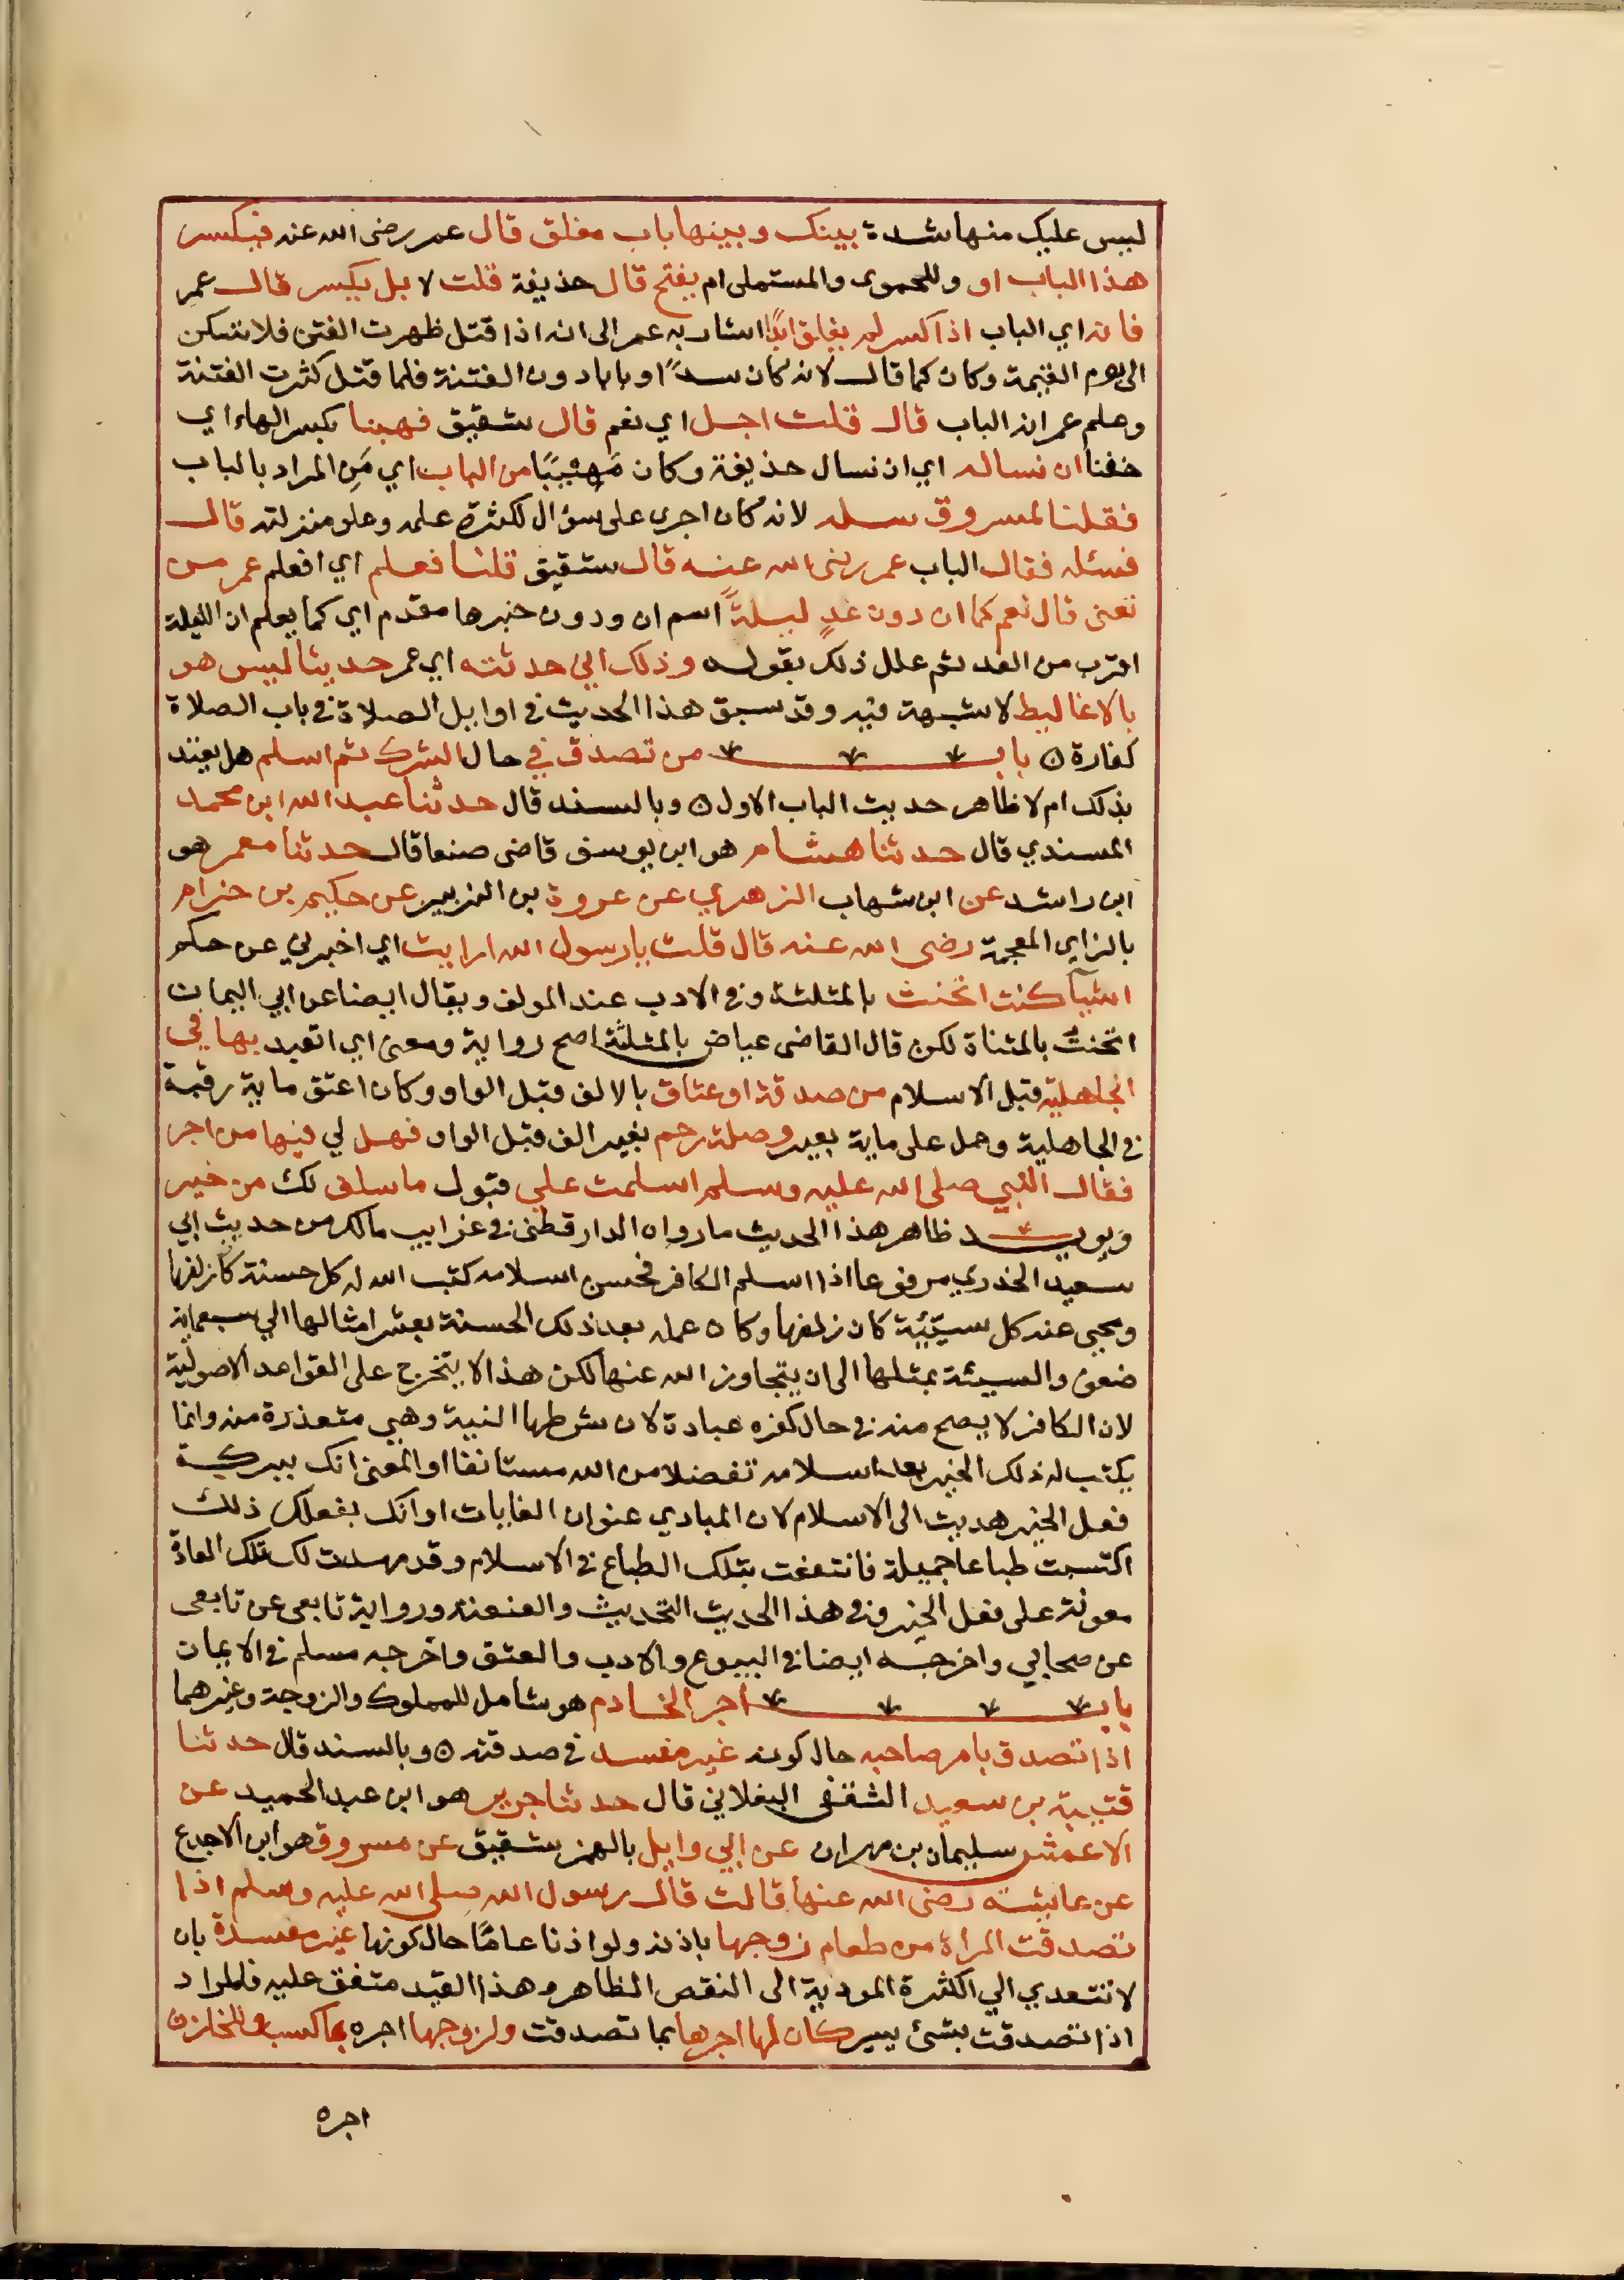 ليس عليك منها شدة بينك وبينها باب مغلق قال عمر رضى الله عنه فيكسر
هذا الباب او وللحموى والمستملى ام يفتح قال حذيفة قلت لا بل يكسر قال عمر
فانه اي الباب اذا كسر لم يغلق ابدًا اشار به عمر الى انه اذا قتل ظهرت الفتن فلا تسكن
الى يوم القيمة وكان كما قال لانه كان سدًا او بابا دون الفتنة فلما قتل كثرت الفتنة
وعلم عمر انه الباب قال قلت اجل اي نعم قال شقيق فهبنا بكسر الهاء اي
خفنا ان نساله اي ان نسال حذيفة وكان مَهِيبًا من الباب اي مَنِ المراد بالباب
فقلنا لمسروق سله لانه كان اجرى على سؤال لكثرة علمه وعلو منزلته قال
فسئله فقال الباب عمر رضى الله عنه قال شقيق قلنا فعلم اي افعلم عمر من
تعنى قال نعم كما ان دون غدٍ ليلةً اسم ان ودون خبرها مقدم اي كما يعلم ان الليلة
اقرب من الغد ثم علل ذلك بقوله وذلك اني حدثته اي عمر حديثا ليس هو
بالاغاليط لا شبهة فيه وقد سبق هذا الحديث في اوايل الصلاة في باب الصلاة
كفارة ه باب من تصدق في حال الشرك ثم اسلم هل يعتد
بذلك ام لا ظاهر حديث الباب الاول ه وبالسند قال حدثنا عبد الله ابن محمد
المسندي قال حدثنا هشام هو ابن يوسف قاضى صنعا قال حدثنا معمر هو
ابن راشد عن ابن شهاب الزهري عن عروة بن الزبير عن حكيم بن حزام
بالزاي المعجمة رضى الله عنه قال قلت يا رسول الله ارايت اي اخبرني عن حكم
اشيآ كنت اتحنث بالمثلثة وفي الادب عند المولف ويقال ايضا عن ابي اليمان
اتحنت بالمثناة لكن قال القاضى عياض بالمثلثة اصح رواية ومعنى اي اتعبد بها في
الجاهلية قبل الاسلام من صدقة او عتاق بالالف قبل الواو وكان اعتق ماية رقبة
في الجاهلية وحمل على ماية بعير وصلة رحم بغير الف قبل الواو فهل لي فيها من اجر
فقال النبي صلى الله عليه وسلم اسلمت على قبول ما سلف لك من خير
ويويد ظاهر هذا الحديث ما رواه الدار قطنى في غرايب مالك من حديث ابي
سعيد الخدري مرفوعا اذا اسلم الكافر فحسن اسلامه كتب الله له كل حسنة كان زلفها
ومحى عنه كل سيّئة كان زلفها وكان عمله بعد ذلك الحسنة بعشر امثالها الي سبعماية
ضعف والسيئة بمثلها الى ان يتجاوز الله عنها لكن هذا لا يتخرج على القواعد الاصولية
لان الكافر لا يصح منه في حال كفره عبادة لان شرطها النية وهي متعذرة منه وانما
يكتب له ذلك الخير بعد اسلامه تفضلا من الله مستانفا او المعنى انك ببركة
فعل الخير هديت الى الاسلام لان المبادي عنوان الغايات او انك بفعلك ذلك
اكتسبت طباعا جميلة فانتفعت بتلك الطباع في الاسلام وقد مهدت لك تلك العادة
معونة على فعل الخير وفي هذا الحديث التحديث والعنعنة ورواية تابعى عن تابعى
عن صحابي واخرجه ايضا في البيوع والادب والعتق واخرجه مسلم في الايمان
باب اجر الخادم هو شامل للمملوك والزوجة وغيرهما
اذا تصدق بامر صاحبه حال كونه غير مفسد في صدقته ه وبالسند قال حدثنا
قتيبة بن سعيد الثقفى البغلاني قال حدثنا جرير هو ابن عبد الحميد عن
الاعمش سليمان بن مهران عن ابي وايل بالهمز شقيق عن مسروق هو ابن الاجدع
عن عايشة رضى الله عنها قالت قال رسول الله صلى الله عليه وسلم اذا
تصدقت المراة من طعام زوجها باذنه ولو اذنا عامًا حال كونها غير مفسدة بان
لا تتعدي الي الكثرة المودية الى النقص الظاهر وهذا القيد متفق عليه فالمراد
اذا تصدقت بشئ يسير كان لها اجرها بما تصدقت ولزوجها اجره بما كسب وللخازن
اجره